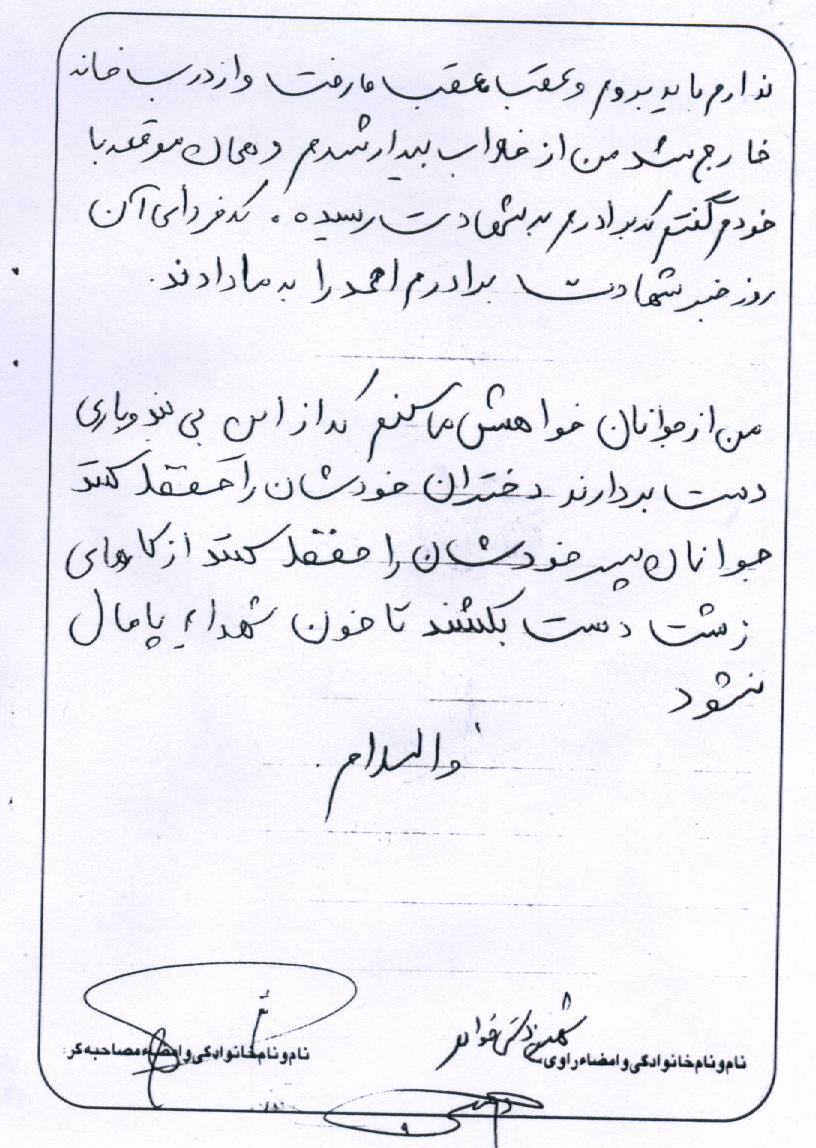 ندارم باید بروم و عقب عقب می رفت و از درب خانه
خارج شد من از خواب بیدار شدم و همان موقعه با
خودم گفتم که برادرم به شهادت رسیده . که فردای آن
روز خبر شهادت برادرم احمد را به ما دادند .
من از جوانان خواهش می کنم که از این بی بندوباری
دست بردارند دختران خودشان را حفظ کنند
جوانان پسر خودشان را حفظ کنند از کارهای
زشت دست بکشند تا خون شهداء پامال
نشود
والسلام .
نام و نام خانوادگی و امضاء راوی:
نام و نام خانوادگی و امضاء مصاحبه گر: